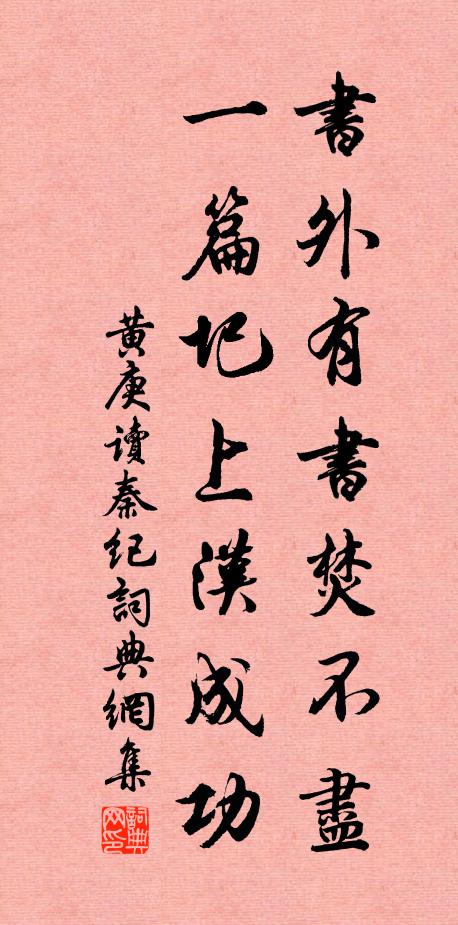 書外有書焚不盡
一篇圯上漢成功
黄庚讀秦紀詞典網集
詞典网印